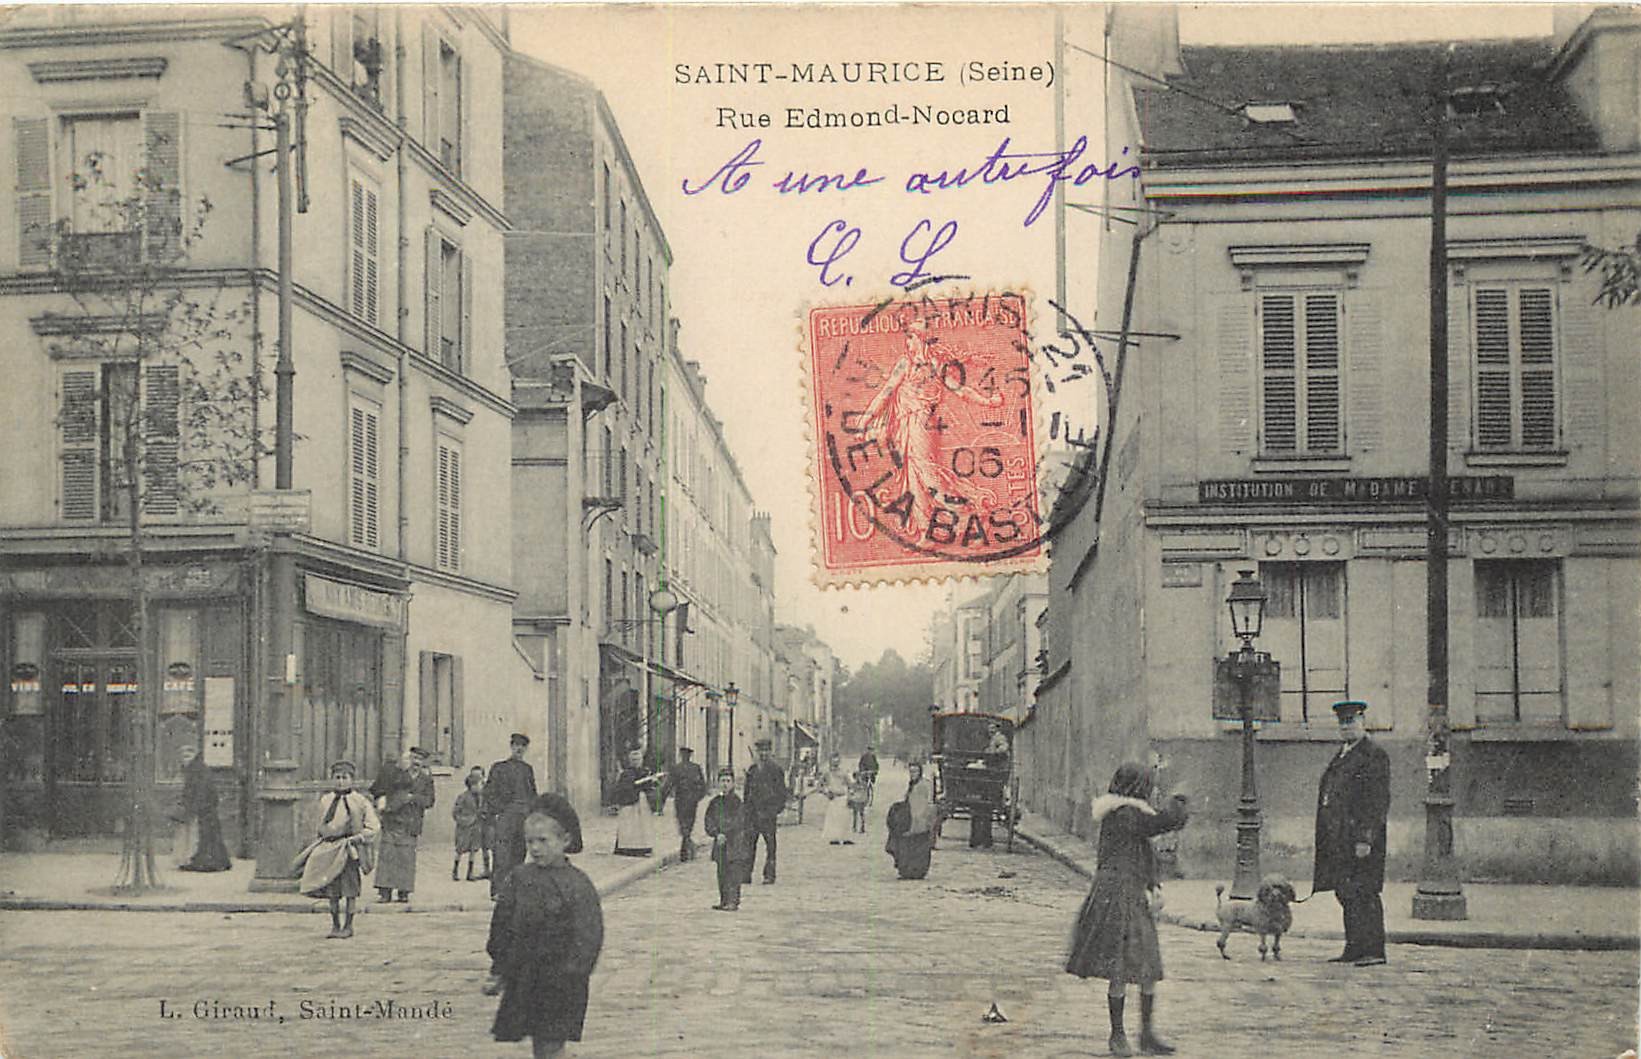 SAINT-MAURICE (Seine)
Rue Edmond-Nocard
A une autre fois
C. L
REPUBLIQUE FRANÇAISE
10c
POSTES
PARIS-21
R. DE LA BASTILLE
20 45
4 - 1
05
INSTITUTION DE MADAME
VINS
CAFÉ
L. Giraud, Saint-Mandé